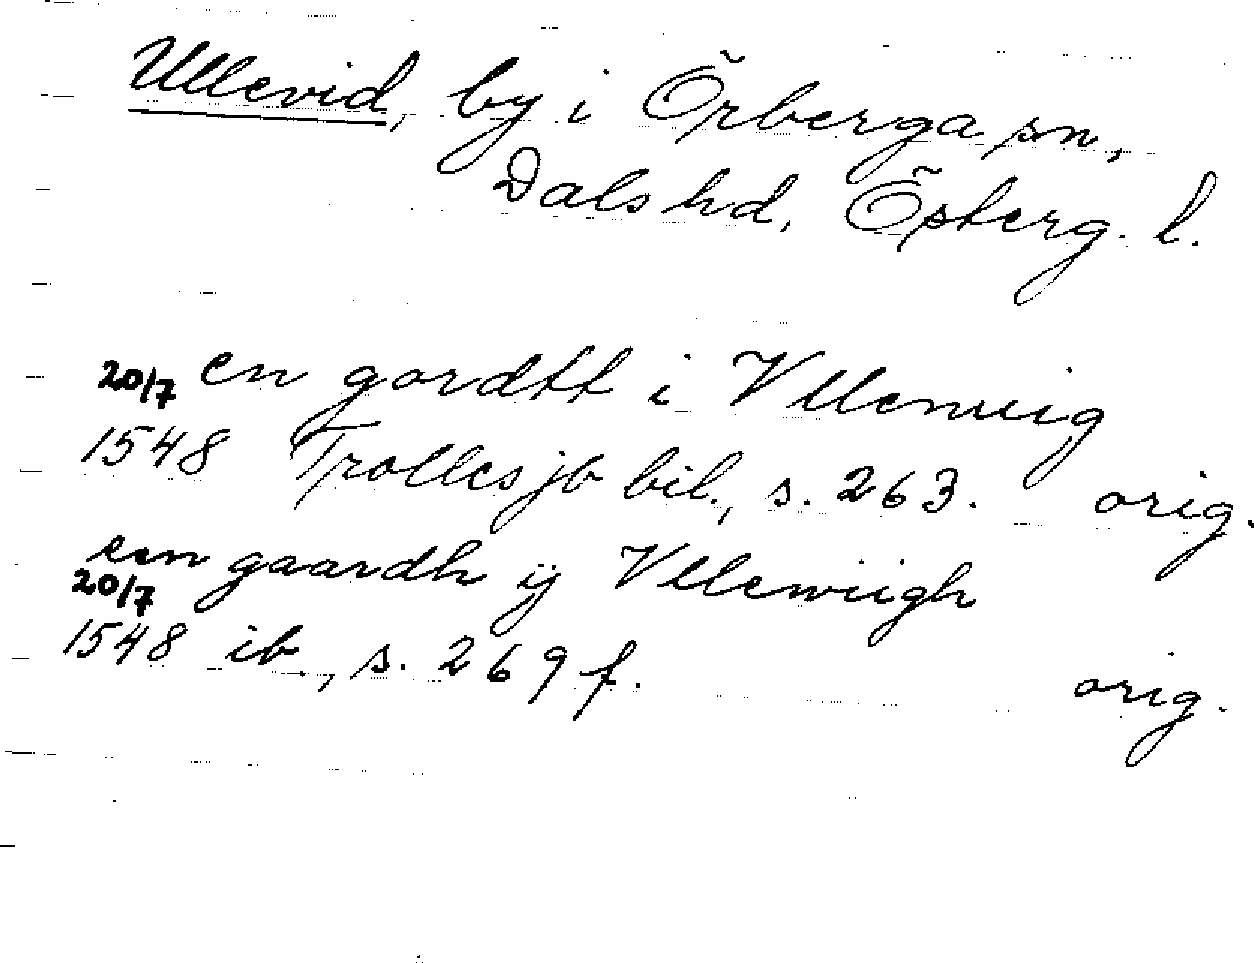 Ullevid, by i Örberga sn,
Dals hd, Österg. l.
20/7 en gordtt i Vllewiig
1548 Trolles jb bil., s. 263. orig.
een gaardh ij Vllewiigh
20/7
1548 ib., s. 269 f. orig.